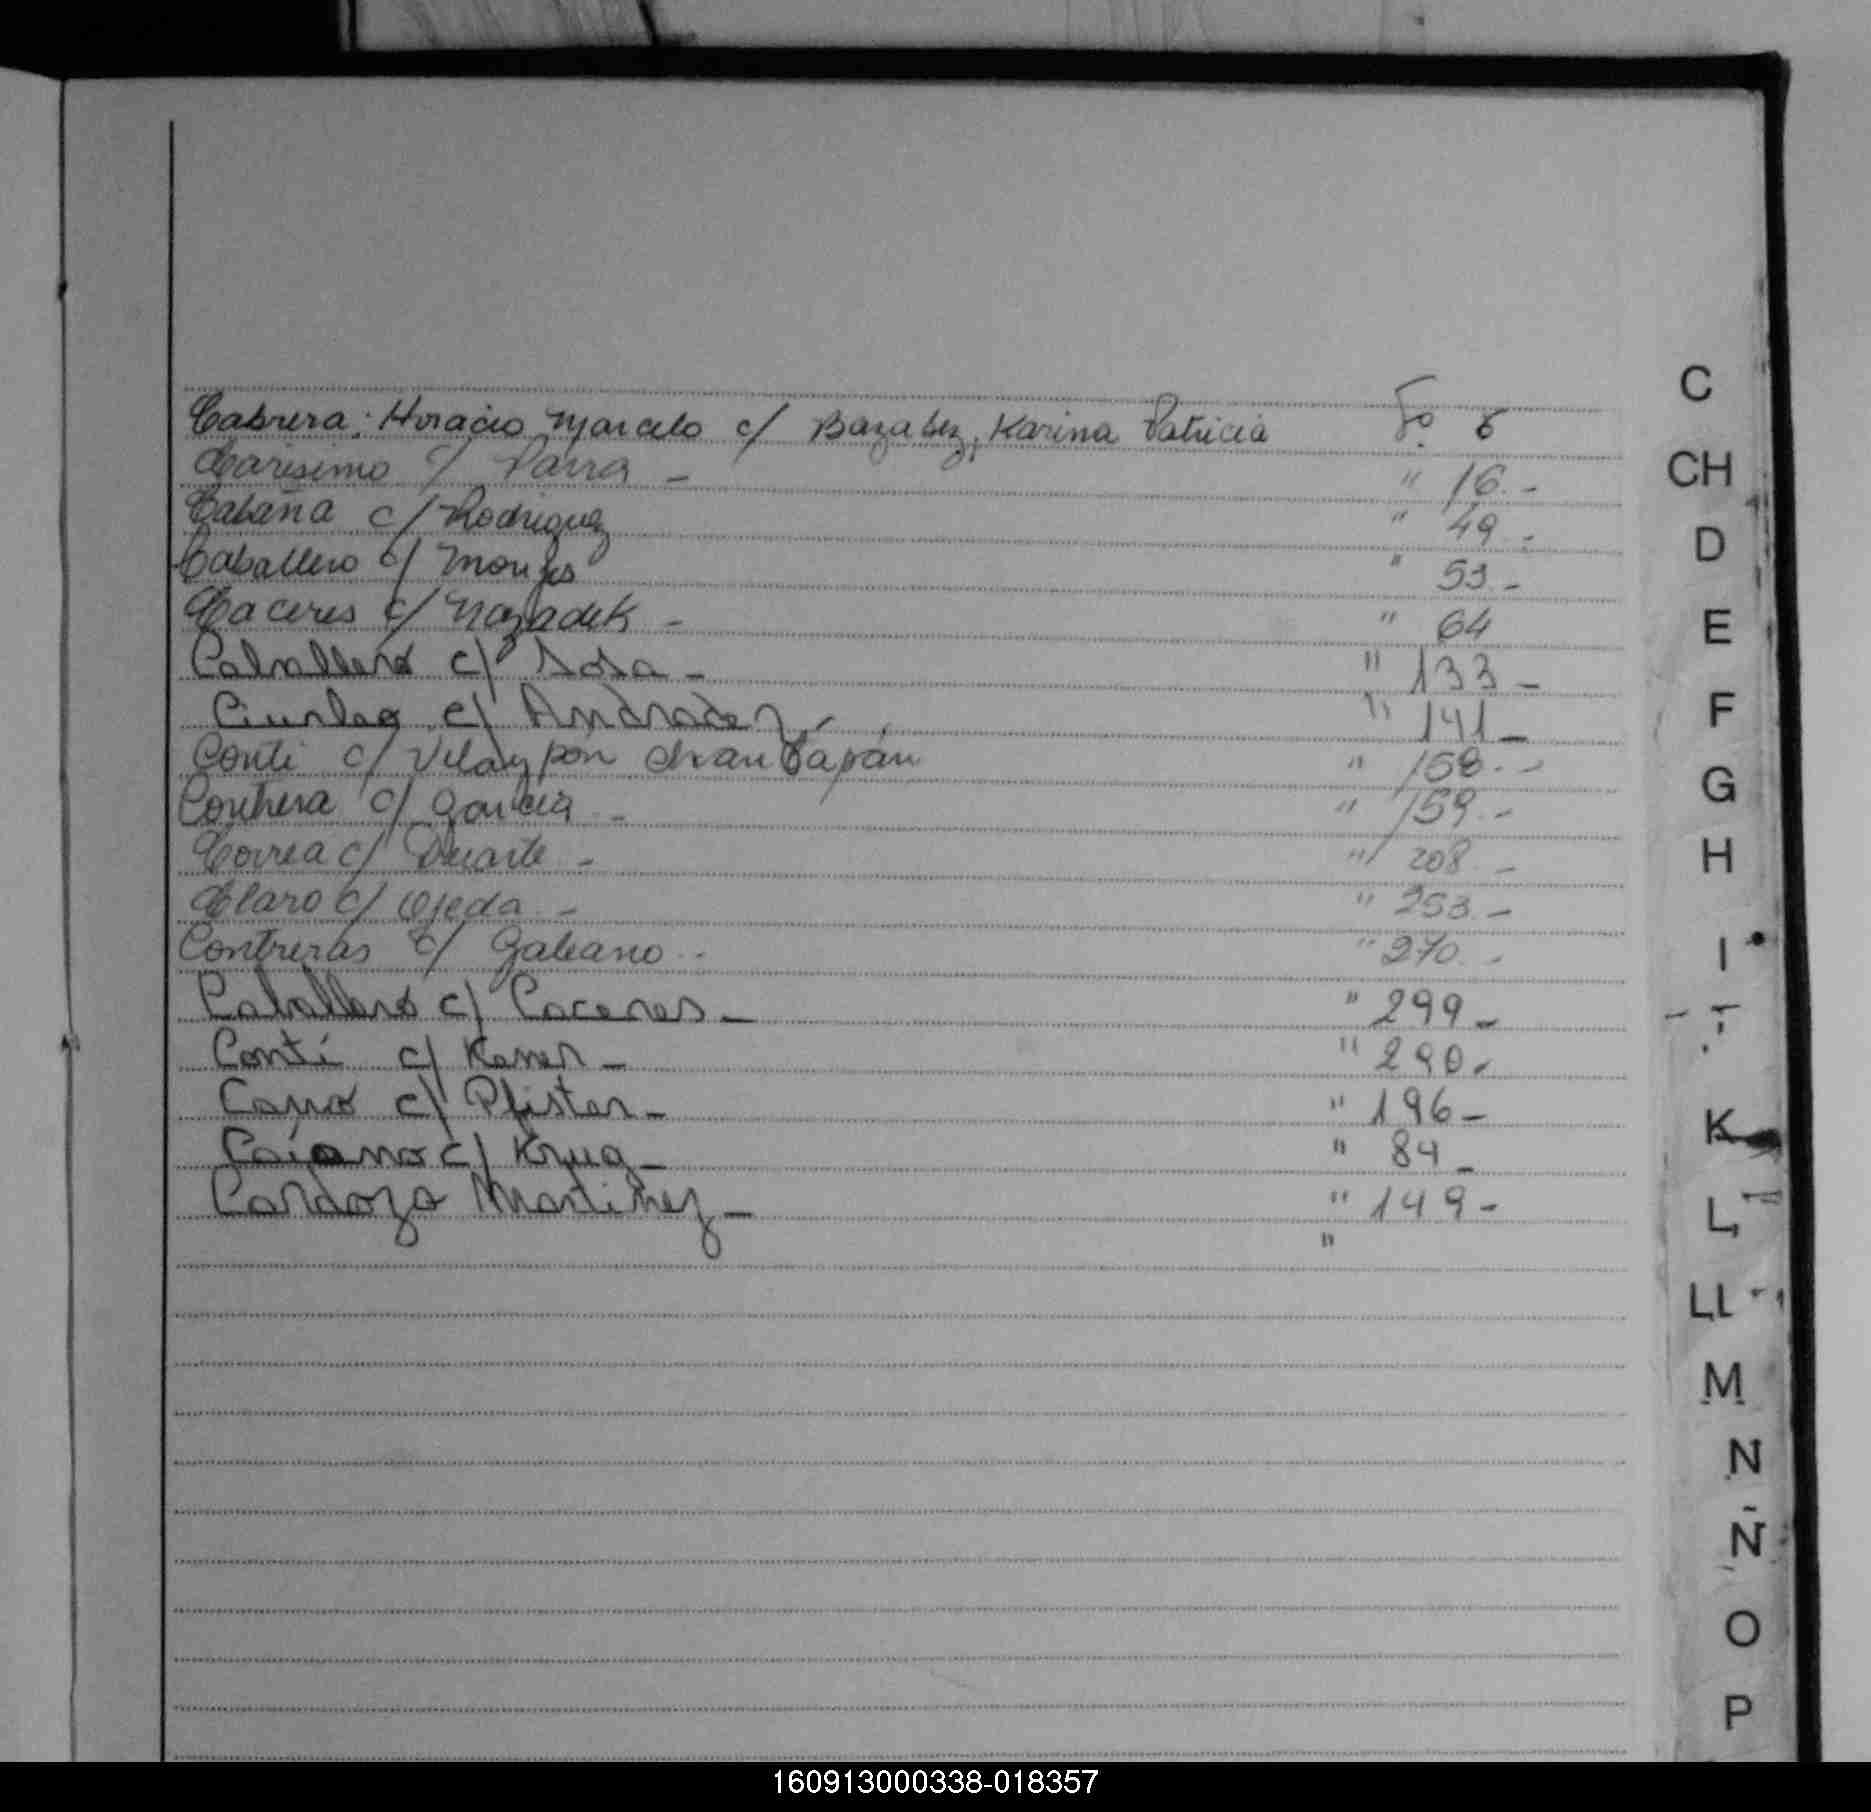 Cabrera: Horacio Marcelo c/ Bazabez, Karina Patricia Fo. 6
Carisimo c/ Parra - " 16.-
Cabaña c/ Rodriguez " 49.-
Caballero c/ Monjes " 53.-
Caceres c/ Nazadek - " 64
Caballero c/ Sosa - " 133-
c/ Andradez " 141-
Conti c/ " 158.-
Contrera c/ Garcia - " 159.-
Correa c/ Duarte - " 208.-
Claro c/ Ojeda. - " 253.-
Contreras c/ Galeano.- " 270.-
Caballero c/ Caceres- " 299-
Conti c/ - " 290-
Cano c/ Pfister- " 196-
c/ Krug- " 84-
Cardozo Martinez- " 149-
"
C
CH
D
E
F
G
H
I
K
L
LL
M
N
Ñ
O
P
160913000338-018357